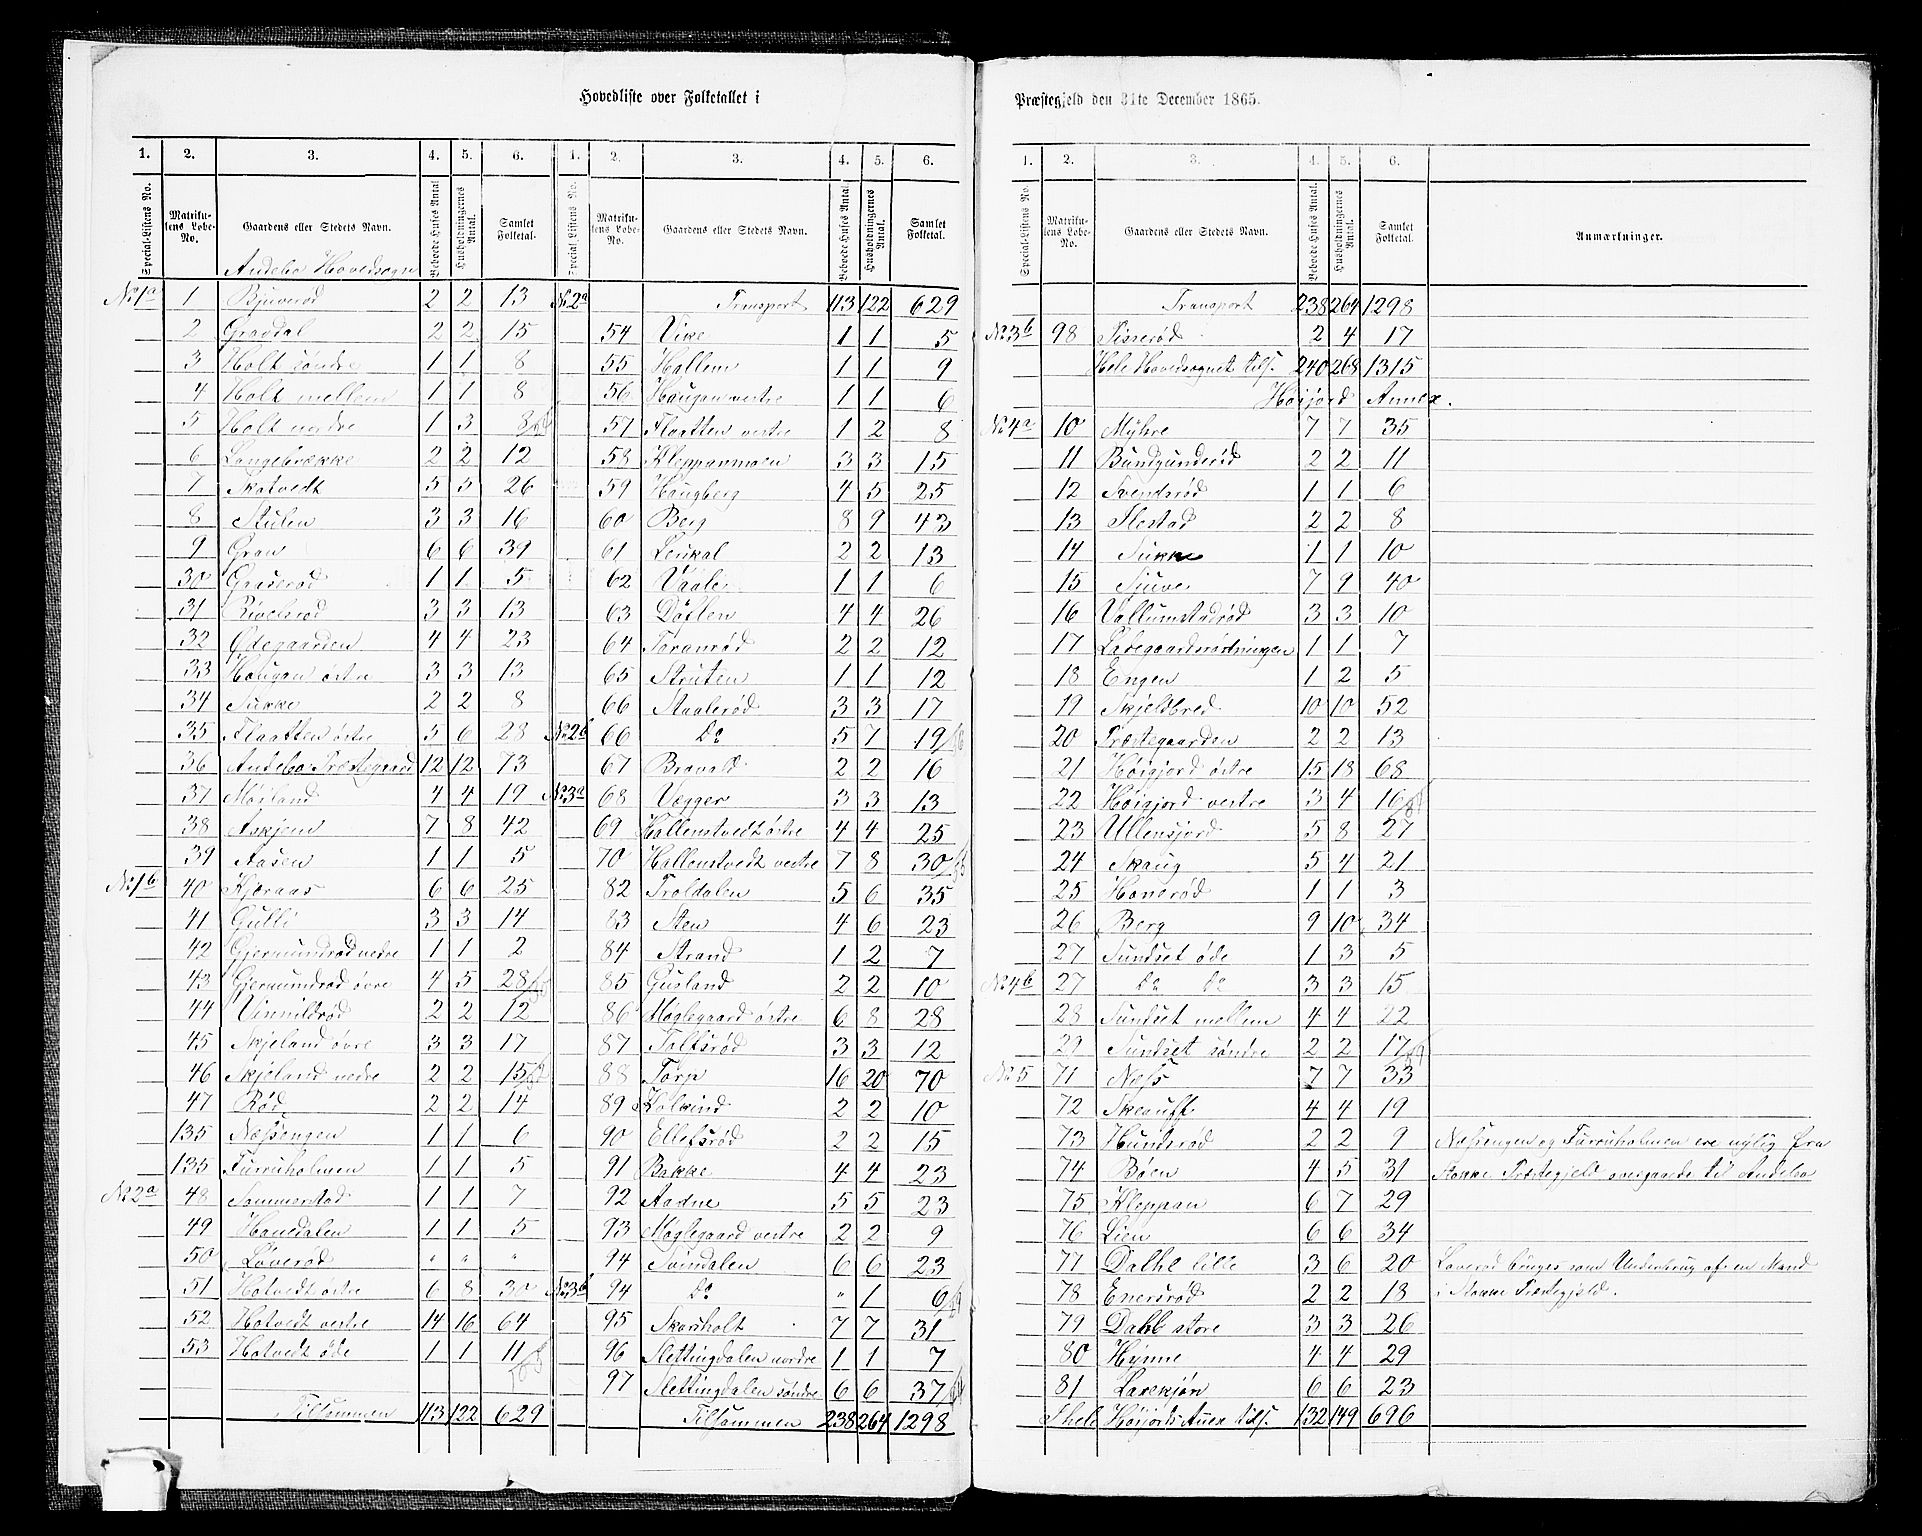 Hovedliste over Folketallet i
1. 2. 3. 4. 5. 6.
Special-Listens No. Matrikulens Løbe-No. Gaardens eller Stedets Navn. Beboede Huses Antal. Husholdningernes Antal. Samlet Folketal.
Andebo Hovedsogn
No 1a 1 Bjuerød 2 2 13
2 Gravdal 2 2 15
3 Holt søndre 1 1 8
4 Holt mellem 1 1 8
5 Holt nordre 1 3 8
6 Langebrække 2 2 12
7 Skotvedt 5 5 26
8 Stulen 3 3 16
9 Gran 6 6 39
30 Graserød 1 1 5
31 Rivelsrød 3 3 13
32 Ødegaarden 4 4 23
33 Hougan østre 3 3 13
34 Sukke 2 2 8
35 Flaatten østre 5 6 28
36 Andebo Præstegaard 12 12 73
37 Møiland 4 4 19
38 Askjem 7 8 42
39 Aasen 1 1 5
No 1b 40 Kjæraas 6 6 25
41 Gulli 3 3 14
42 Gjermundrød nedre 1 1 2
43 Gjermundrød øvre 4 5 28
44 Vinnildrød 2 2 12
45 Skjeland øvre 3 3 17
46 Skjeland nedre 2 2 15
47 Rød 2 2 14
135 Næssengen 1 1 6
135 Furruholmen 1 1 5
No 2a 48 Sommerstad 1 1 7
49 Hanedalen 1 1 5
50 Løverød " " "
51 Hotvedt østre 6 8 30
52 Hotvedt vestre 14 16 64
53 Hotvedt øde 1 1 11
Tilsammen 113 122 629
1. 2. 3. 4. 5. 6.
Special-Listens No. Matrikulens Løbe-No. Gaardens eller Stedets Navn. Beboede Huses Antal. Husholdningernes Antal. Samlet Folketal.
No 2a Transport 113 122 629
54 Vike 1 1 5
55 Hallem 1 1 9
56 Hougan vestre 1 1 6
57 Flaatten vestre 1 2 8
58 Kleppanmoen 3 3 15
59 Hougberg 4 5 25
60 Berg 8 9 43
61 Leukal 2 2 13
62 Vaale 1 1 6
63 Døflen 4 4 26
64 Toranrød 2 2 12
65 Struten 1 1 12
66 Staalerød 3 3 17
No 2b 66 Do 5 7 19
67 Bravald 2 2 16
No 3a 68 Vegger 3 3 13
69 Hallenstvedt østre 4 4 25
70 Hallenstvedt vestre 7 8 30
82 Troldalen 5 6 35
83 Sten 4 6 23
84 Strand 1 2 7
85 Gusland 2 2 10
86 Møglegaard østre 6 8 28
87 Tolfsrød 3 3 12
88 Torp 16 20 70
89 Kolkind 2 2 10
90 Ellefsrød 2 2 15
91 Bakke 4 4 23
92 Aadne 5 5 23
93 Møglegaard vestre 2 2 9
94 Svindalen 6 6 23
No 3b 94 Do " 1 6
95 Skarsholt 7 7 31
96 Slettingdalen nordre 1 1 7
97 Slettingdalen søndre 6 6 37
Tilsammen 238 264 1298
Præstegjeld den 31te December 1865.
1. 2. 3. 4. 5. 6.
Special-Listens No. Matrikulens Løbe-No. Gaardens eller Stedets Navn. Beboede Huses Antal. Husholdningernes Antal. Samlet Folketal. Anmærkninger.
Transport 238 264 1298
No 3b 98 Fisserød 2 4 17
Hele Hovedsognet tils. 240 268 1315
Høijord Annex.
No 4a 10 Myhre 7 7 35
11 Bundgunderød 2 2 11
12 Svendsrød 1 1 6
13 Flostad 2 2 8
14 Sukke 1 1 10
15 Sjuve 7 9 40
16 Vallumstadrød 3 3 10
17 Ladegaardsrødningen 1 1 7
18 Engen 1 2 5
19 Skjeldbred 10 10 52
20 Præstegaarden 2 2 13
21 Høigjord østre 15 18 68
22 Høigjord vestre 3 4 16
23 Ullensjord 5 8 27
24 Skaug 5 4 21
25 Honerød 1 1 3
26 Berg 9 10 34
27 Sundset øde 1 3 5
No 4b 27 Do Do 3 3 15
28 Sundset mellem 4 4 22
29 Sundset søndre 2 2 17
No 5 71 Næss 7 7 33
72 Skeauft 4 4 19
73 Hundsrød 2 2 9 Næssengen og Furruholmen ere nylig fra
74 Bøen 4 5 31 Stokke Præstegjeld overgaaede til Andebo
75 Kleppan 6 7 29
76 Lien 6 6 34
77 Dalhe lille 3 6 20 Løverød bruges som Underbrug af en Mand
78 Enersrød 2 2 18 i Stokke Præstegjeld.
79 Dahle store 3 3 26
80 Hynne 4 4 29
81 Laxekjøn 6 6 23
I hele Høijords Anex tils. 132 149 696